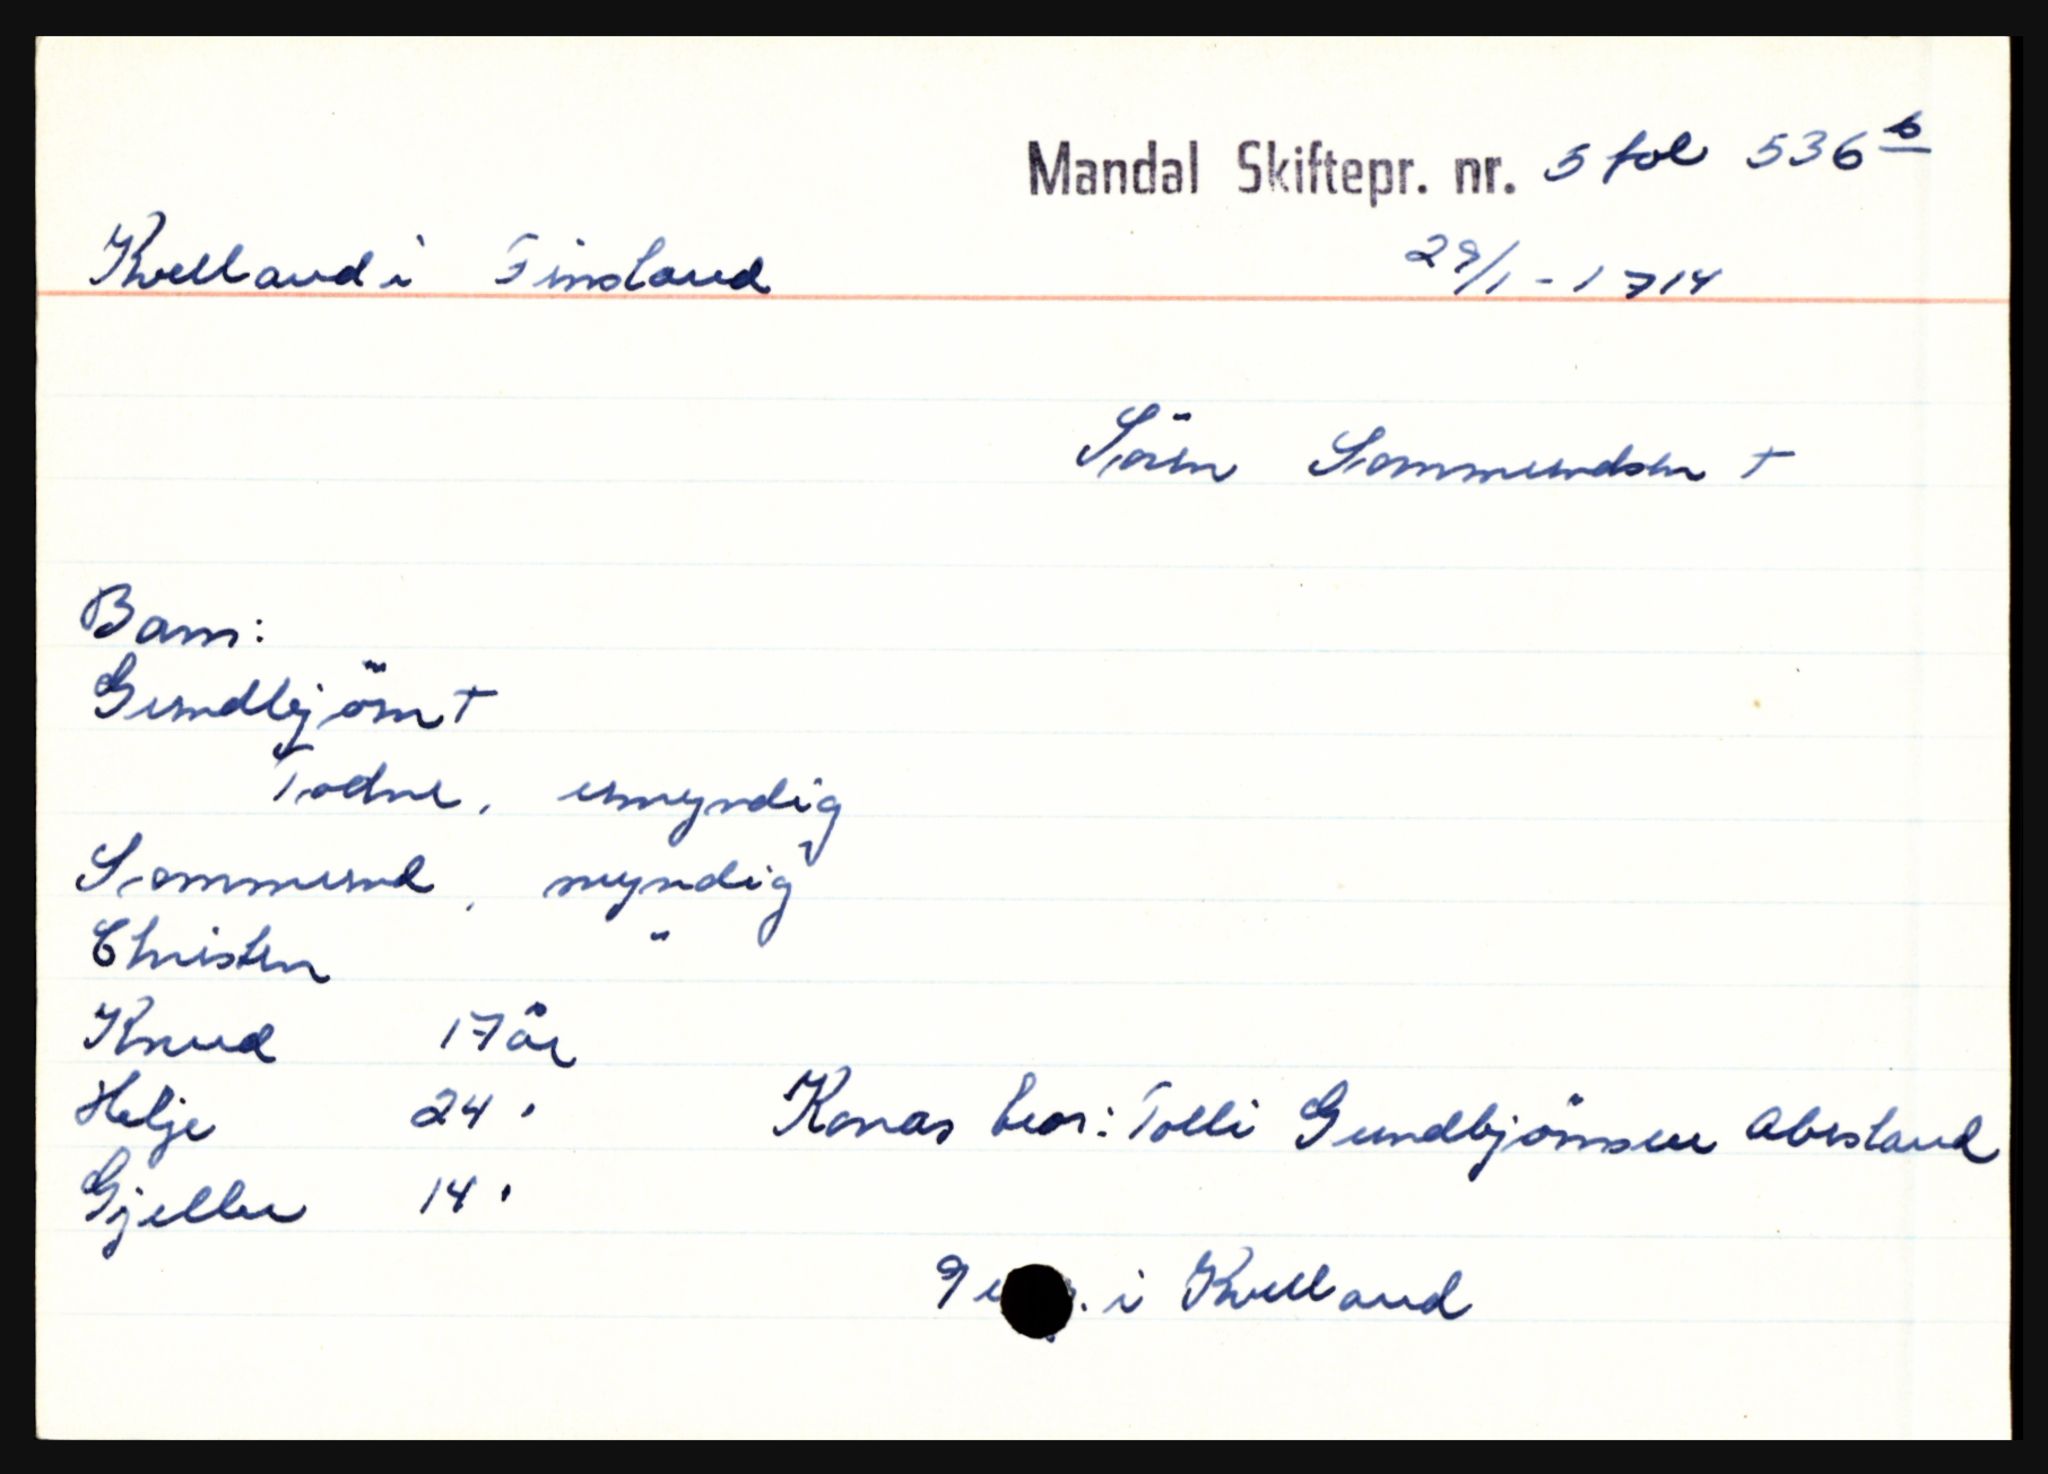 Mandal Skiftepr. nr. 5 fol 536 b
Kvelland i Finsland 29/1-1714
Sörn Sommundsen +
Barn:
Gundbjörn +
Todne, umyndig
Sommund, myndig
Christen "
Knud 17 år
Helje 24 "
Konas bror: Tolli Gundbjörnsen Abestand
Gjeller 14 "
i Kvelland